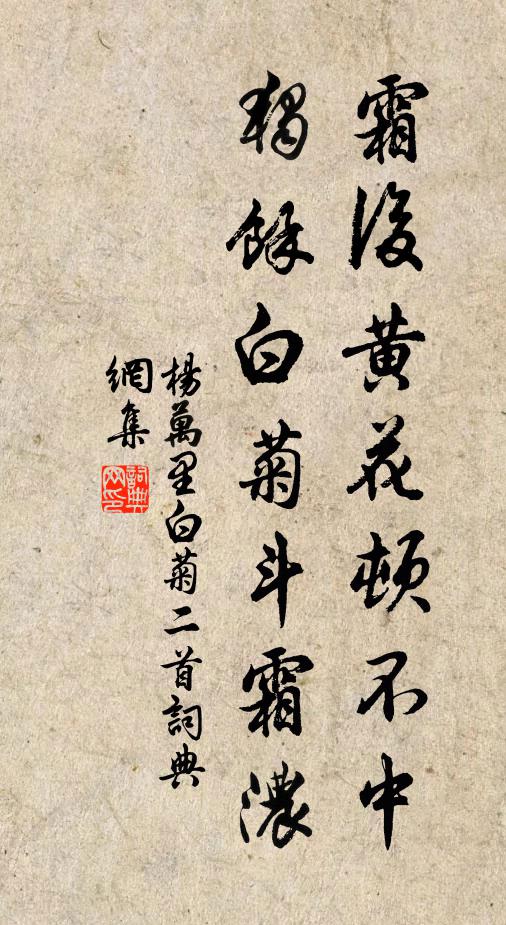 霜後黃花頓不中
獨餘白菊斗霜濃
楊萬里白菊二首詞典
網集
詞典網印